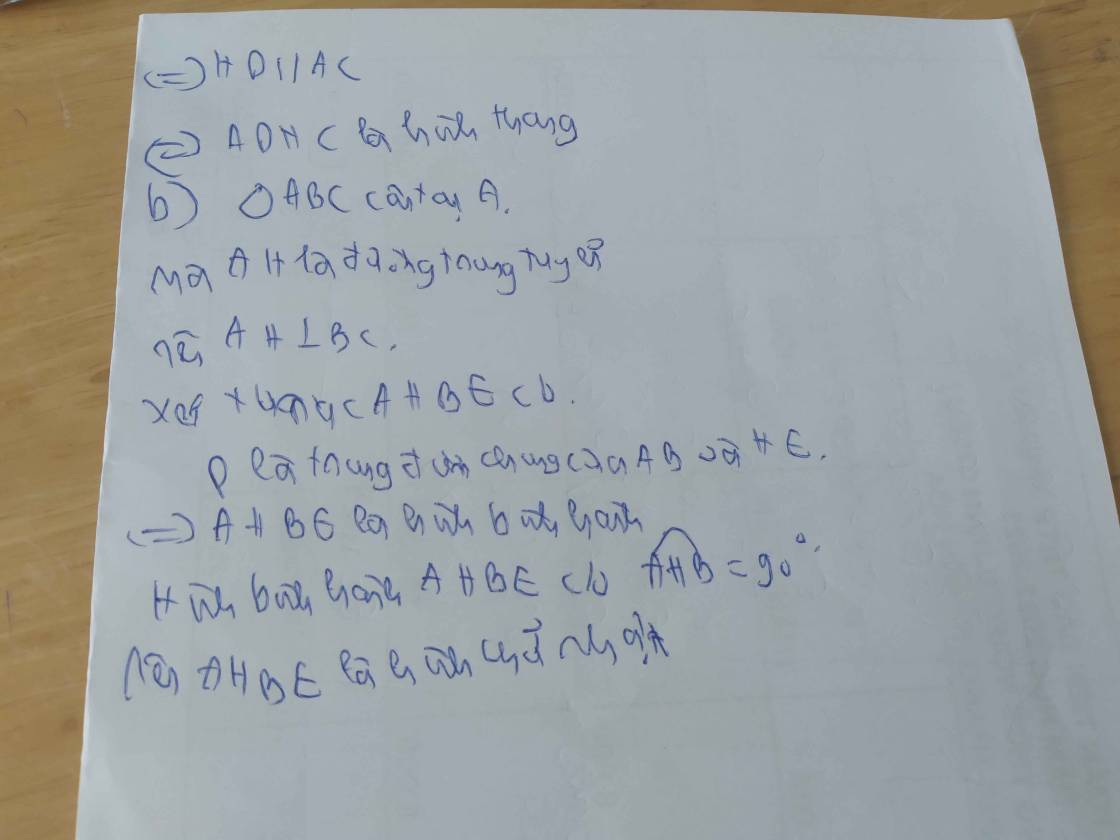 => HD // AC
=> ADHC là hình thang
b) △ABC cân tại A.
mà AH là đường trung tuyến
nên AH ⊥ BC.
Xét tứ giác AHBE có.
D là trung điểm chung của AB và HE.
=> AHBE là hình bình hành
Hình bình hành AHBE có AHB = 90°.
Nên AHBE là hình chữ nhật